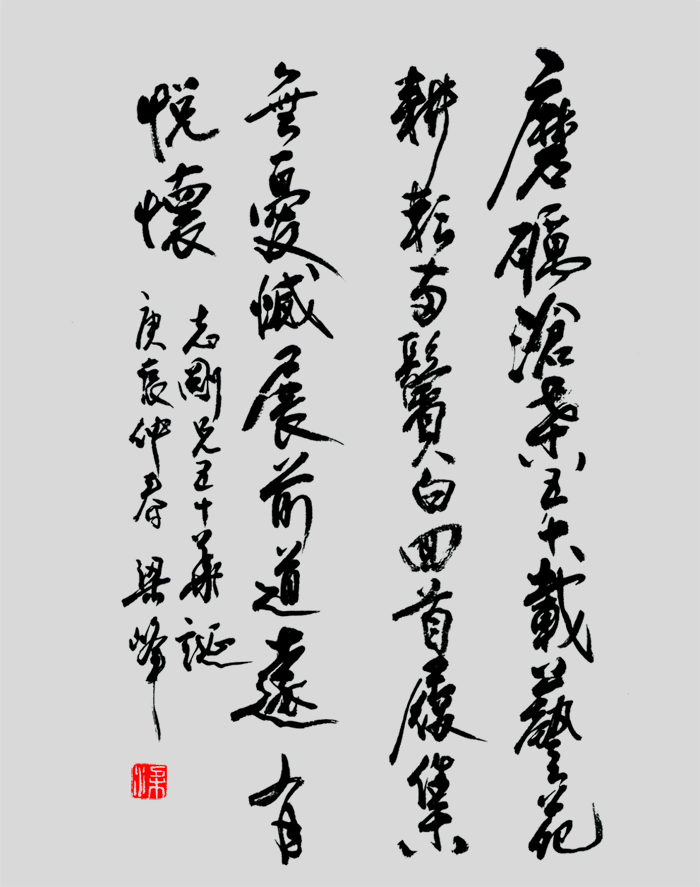 磨礪滄桑五十載藝苑
耕耘兩鬢白回首履集
無憂憾展前道遠有
悅懷
志剛兄五十華誕
庚寅仲春 梁峰
梁